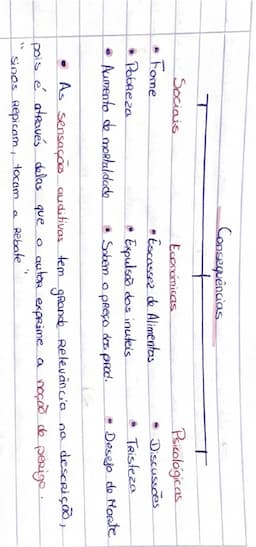 Consequências
Sociais Económicas Psicológicas
• Fome • Escassez de Alimentos • Discussões
• Pobreza • Expulsão dos inuteis • Tristeza
• Aumento da mortalidade • Sobem o preço dos prod. • Desejo de Morte
• As sensações auditivas tem grande relevância na descrição,
pois é através delas que o autor exprime a noção de perigo.
"sinos repicam, tocam a rebate"